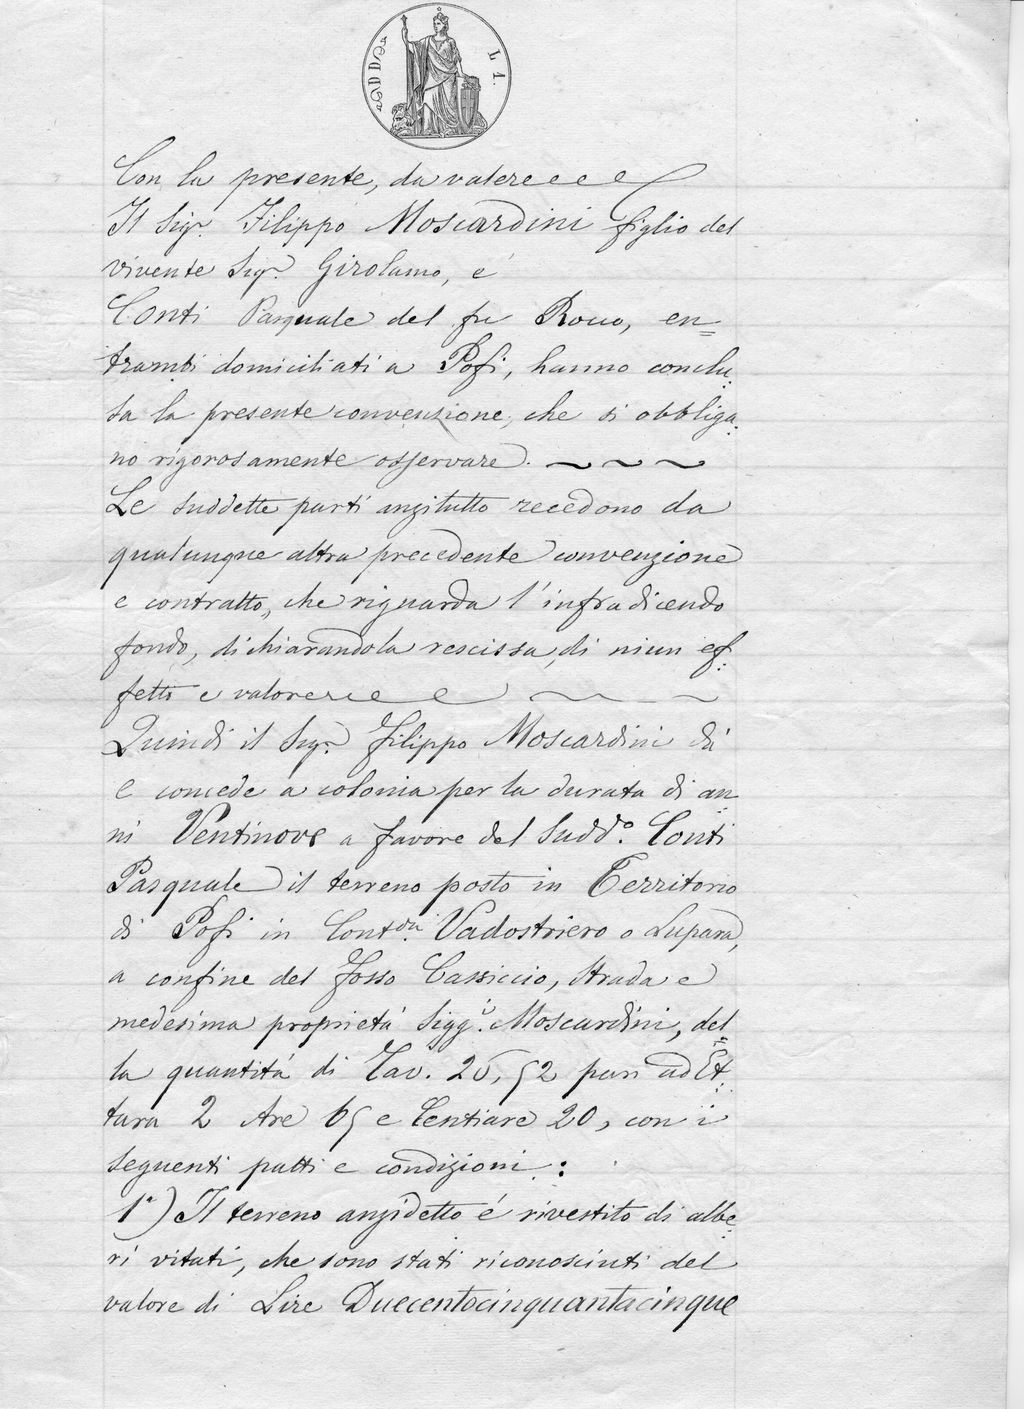 L 1.
Con la presente, da valere e e e
Il Sigr. Filippo Moscardini figlio del
vivente Sigr. Girolamo, e
Conti Pasquale del fu Rocco, en=
trambi domiciliati a Pofi, hanno conclu=
sa la presente convenzione, che si obbliga=
no rigorosamente osservare. ~ ~ ~
Le suddette parti anzitutto recedono da
qualunque altra precedente convenzione
e contratto, che riguarda l'infradicendo
fondo, dichiarandola rescissa, di niun ef=
fetto e valore e e e
Quindi il Sigr. Filippo Moscardini dà
e concede a colonia per la durata di an=
ni Ventinove a favore del Suddo. Conti
Pasquale il terreno posto in Territorio
di Pofi in Contda. Vadostriero o Lupara,
a confine del fosso Cassiccio, strada e
medesima proprietà Siggi. Moscardini, del=
la quantità di Tav. 26,52 pari ad Et=
tara 2 Are 65 e Centiare 20, con i
seguenti patti e condizioni:
1°) Il terreno anzidetto é rivestito di albe=
ri vitati, che sono stati riconosciuti del
valore di Lire Duecentocinquantacinque